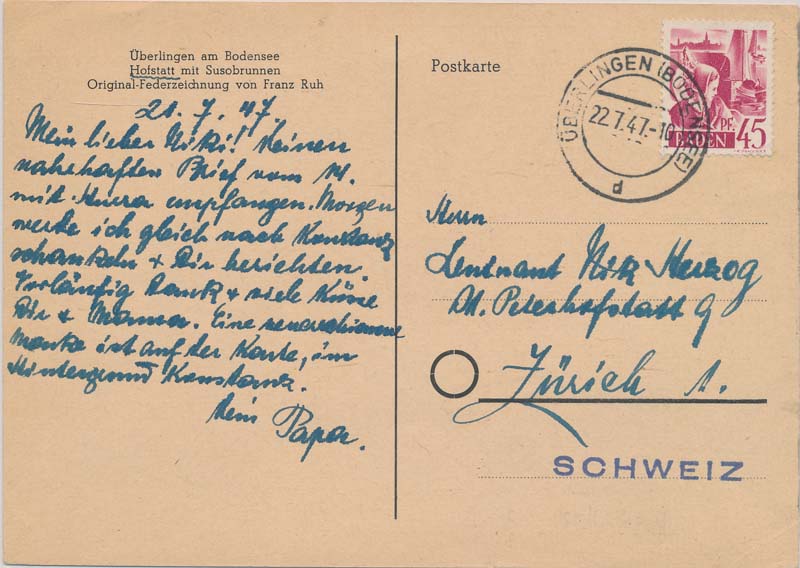 Überlingen am Bodensee
Hofstatt mit Susobrunnen
Original-Federzeichnung von Franz Ruh
21.7.47
Mein lieber Niki! Deinen
nahrhaften Brief vom 14.
mit Hurra empfangen. Morgen
werde ich gleich nach Konstanz
schaukeln & Dir berichten.
Vorläufig Dank & viele Küsse
Dir & Mama. Eine neuerschienene
Marke ist auf der Karte, im
Hintergrund Konstanz.
Dein
Papa.
Postkarte
ÜBERLINGEN (BODENSEE)
22.7.47.-10
d
PF. 45
BADEN
Herrn
Leutnant Nik Herzog
St. Peterhofstatt 9
Zürich 1.
SCHWEIZ